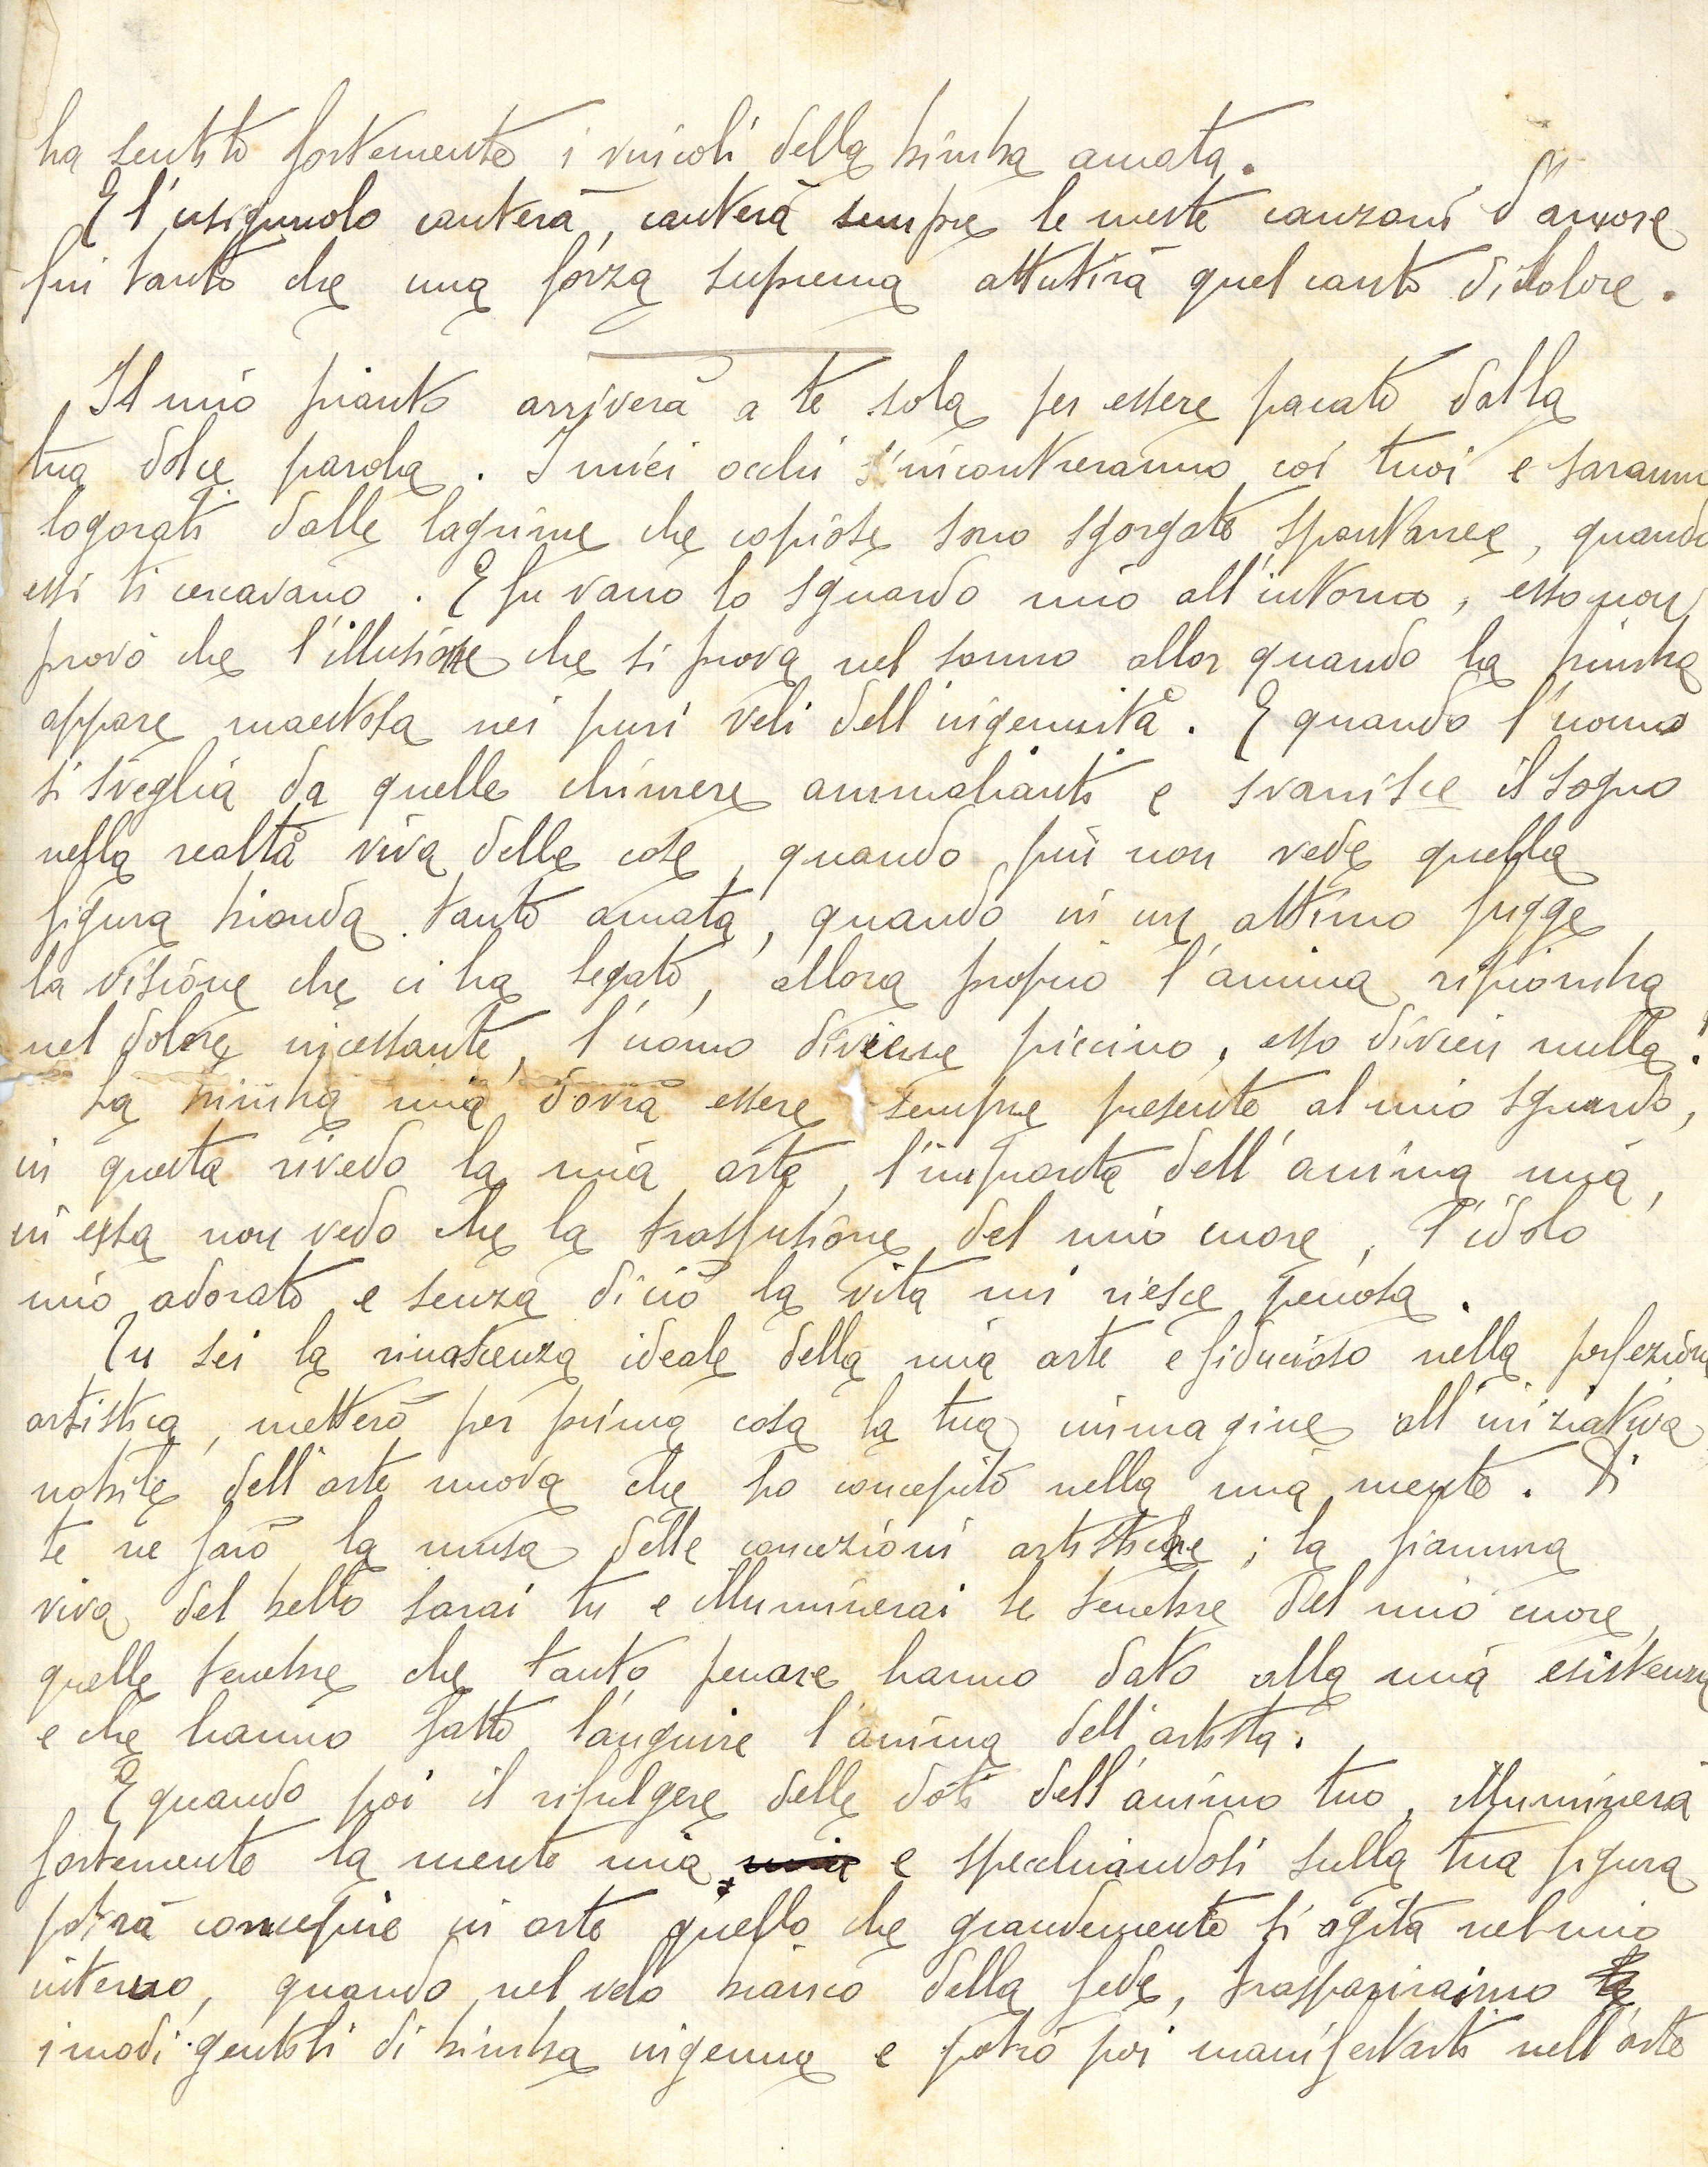 ha sentito fortemente i vincoli della bimba amata.
E l'usignuolo canterà, canterà sempre le meste canzoni d'amore
fin tanto che una forza suprema attutirà quel canto di dolore.
Il mio pianto arriverà a te sola per essere pacato dalla
tua dolce parola. I miei occhi s'incontreranno coi tuoi e saranno
logorati dalle lagrime che copiose sono sgorgate spontanee, quando
essi ti cercavano. E fu vano lo sguardo mio all'intorno, esso non
provò che l'illusione che si prova nel sonno allor quando la bimba
appare maestosa nei puri veli dell'ingenuità. E quando l'uomo
si sveglia da quelle chimere ammalianti e svanisce il sogno
nella realtà viva delle cose, quando più non vede quella
figura bionda tanto amata, quando in un attimo fugge
la visione che ci ha legato, allora proprio l'anima ripiomba
nel dolore incessante, l'uomo diviene piccino, esso divien nulla!
La bimba mia dovrà essere sempre presente al mio sguardo,
in questa rivedo la mia arte, l'impronta dell'anima mia,
in essa non vedo che la trasfusione del mio cuore, l'idolo
mio adorato e senza di ciò la vita mi riesce penosa.
Tu sei la rinascenza ideale della mia arte e fiducioso nella perfezione
artistica, metterò per prima cosa la tua immagine all'iniziativa
nobile dell'arte nuova che ho concepito nella mia mente. Di
te ne farò la musa delle concezioni artistiche; la fiamma
viva del bello sarai tu e illuminerai le tenebre del mio cuore,
quelle tenebre che tanto penare hanno dato alla mia esistenza
e che hanno fatto languire l'anima dell'artista.
E quando poi il rifulgere delle doti dell'animo tuo, illuminerà
fortemente la mente mia, mia e specchiandosi sulla tua figura
potrà concepire in arte quello che grandemente si agita nel mio
interno, quando nel velo bianco della fede, traspariranno
i modi gentili di bimba ingenua e potrò poi manifestarti nell'arte